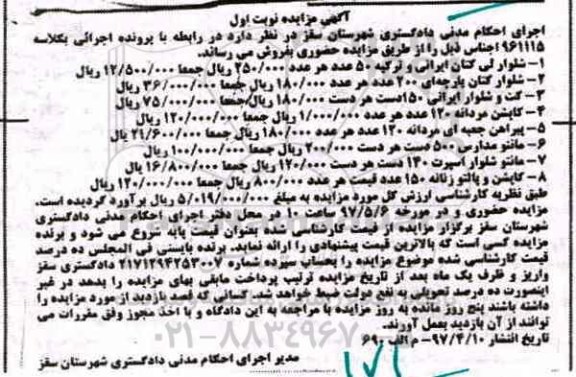 آگهی مزایده نوبت اول
اجرای احکام مدنی دادگستری شهرستان سقز در نظر دارد در رابطه با پرونده اجرائی بکلاسه
۹۶۱۱۱۵ اجناس ذیل را از طریق مزایده حضوری بفروش می رساند.
۱- شلوار لی کتان ایرانی و ترکیه ۵۰ عدد هر عدد ۲۵۰/۰۰۰ ریال جمعا ۱۲/۵۰۰/۰۰۰ ریال
۲- شلوار کتان پارچه‌ای ۲۰۰ عدد هر عدد ۱۸۰/۰۰۰ ریال جمعا ۳۶/۰۰۰/۰۰۰ ریال
۳- کت و شلوار ایرانی ۱۵۰ دست هر دست ۱۸۰/۰۰۰ ریال جمعا ۷۵/۰۰۰/۰۰۰ ریال
۴- کاپشن مردانه ۱۲۰ عدد هر عدد ۱/۰۰۰/۰۰۰ ریال جمعا ۱۲۰/۰۰۰/۰۰۰ ریال
۵- پیراهن جعبه ای مردانه ۱۲۰ عدد هر عدد ۱۸۰/۰۰۰ ریال جمعا ۲۱/۶۰۰/۰۰۰ ریال
۶- مانتو مدارس ۵۰۰ دست هر دست ۲۰۰/۰۰۰ ریال جمعا ۱۰۰/۰۰۰/۰۰۰ ریال
۷- مانتو شلوار اسپرت ۱۴۰ دست هر دست ۱۲۰/۰۰۰ ریال جمعا ۱۶/۸۰۰/۰۰۰ ریال
۸- کاپشن و پالتو زنانه ۱۵۰ عدد قیمت هر عدد ۸۰۰/۰۰۰ ریال جمعا ۱۲۰/۰۰۰/۰۰۰ ریال
طبق نظریه کارشناسی ارزش کل مورد مزایده به مبلغ ۵/۰۱۹/۰۰۰/۰۰۰ ریال برآورد گردیده است.
مزایده حضوری و در مورخه ۹۷/۵/۶ ساعت ۱۰ در محل دفتر اجرای احکام مدنی دادگستری
شهرستان سقز برگزار مزایده از قیمت کارشناسی شده بعنوان قیمت پایه شروع می شود و برنده
مزایده کسی است که بالاترین قیمت پیشنهادی را ارائه نماید. برنده بایستی فی المجلس ده درصد
قیمت کارشناسی شده موضوع مزایده را بحساب سپرده شماره ۲۱۷۱۲۹۴۲۵۳۰۰۷ دادگستری سقز
واریز و ظرف یک ماه بعد از تاریخ مزایده ترتیب پرداخت مابقی بهای مزایده را بدهد در غیر
اینصورت ده درصد تحویلی به نفع دولت ضبط خواهد شد. کسانی که قصد بازدید از مورد مزایده را
داشته باشند پنج روز مانده به روز مزایده با مراجعه به این دادگاه و با اخذ مجوز وفق مقررات می
توانند از آن بازدید بعمل آورند.
تاریخ انتشار ۹۷/۴/۱۰- م الف ۶۹۰
مدیر اجرای احکام مدنی دادگستری شهرستان سقز
۰۲۱-۸۸۳۴۹۶۷۰